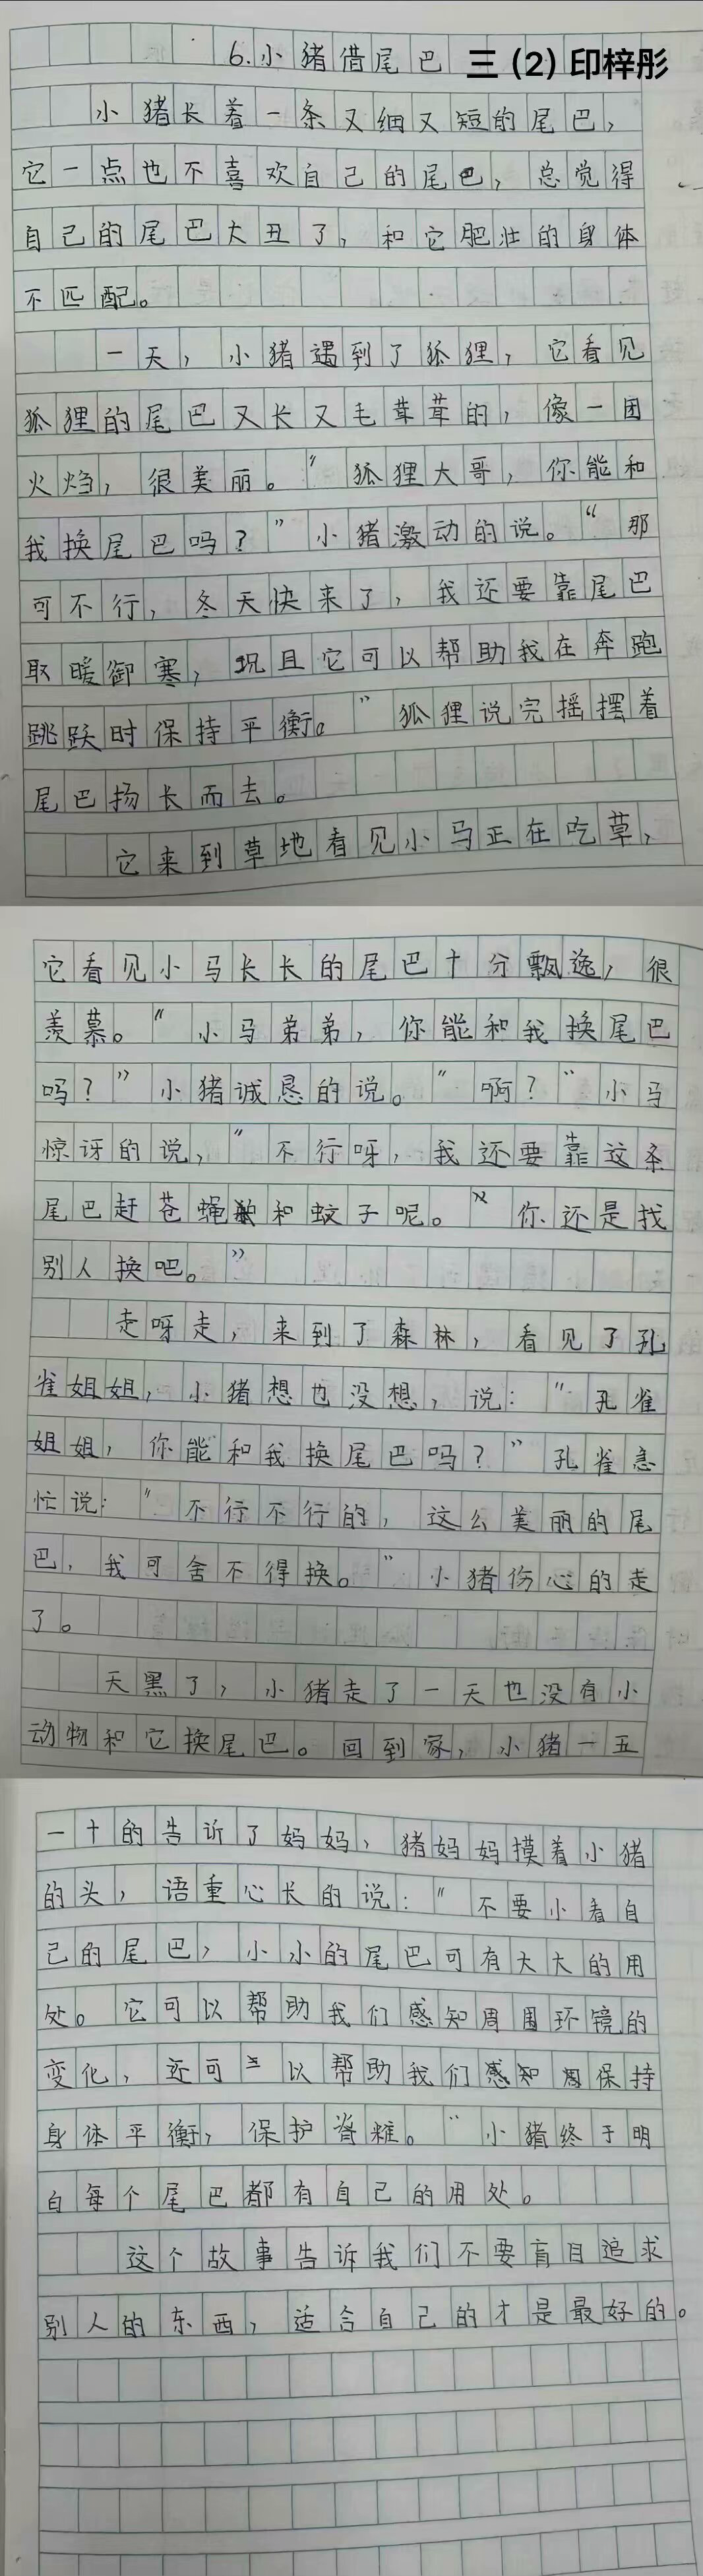 6.小猪借尾巴 三（2）印梓彤
小猪长着一条又细又短的尾巴，
它一点也不喜欢自己的尾巴，总觉得
自己的尾巴大丑了，和它肥壮的身体
不匹配。
一天，小猪遇到了狐狸，它看见
狐狸的尾巴又长又毛茸茸的，像一团
火焰，很美丽。"狐狸大哥，你能和
我换尾巴吗？"小猪激动的说。"那
可不行，冬天快来了，我还要靠尾巴
取暖御寒，况且它可以帮助我在奔跑
跳跃时保持平衡。"狐狸说完摇摆着
尾巴扬长而去。
它来到草地看见小马正在吃草，
它看见小马长长的尾巴十分飘逸，很
羡慕。"小马弟弟，你能和我换尾巴
吗？"小猪诚恳的说。"啊？"小马
惊讶的说，"不行呀，我还要靠这条
尾巴赶苍蝇和蚊子呢。"你还是找
别人换吧。"
走呀走，来到了森林，看见了孔
雀姐姐，小猪想也没想，说："孔雀
姐姐，你能和我换尾巴吗？"孔雀急
忙说："不行不行的，这么美丽的尾
巴，我可舍不得换。"小猪伤心的走
了。
天黑了，小猪走了一天也没有小
动物和它换尾巴。回到家，小猪一五
一十的告诉了妈妈，猪妈妈摸着小猪
的头，语重心长的说："不要小看自
己的尾巴，小小的尾巴可有大大的用
处。它可以帮助我们感知周围环镜的
变化，还可以帮助我们保持
身体平衡，保护脊椎。"小猪终于明
白每个尾巴都有自己的用处。
这个故事告诉我们不要盲目追求
别人的东西，适合自己的才是最好的。